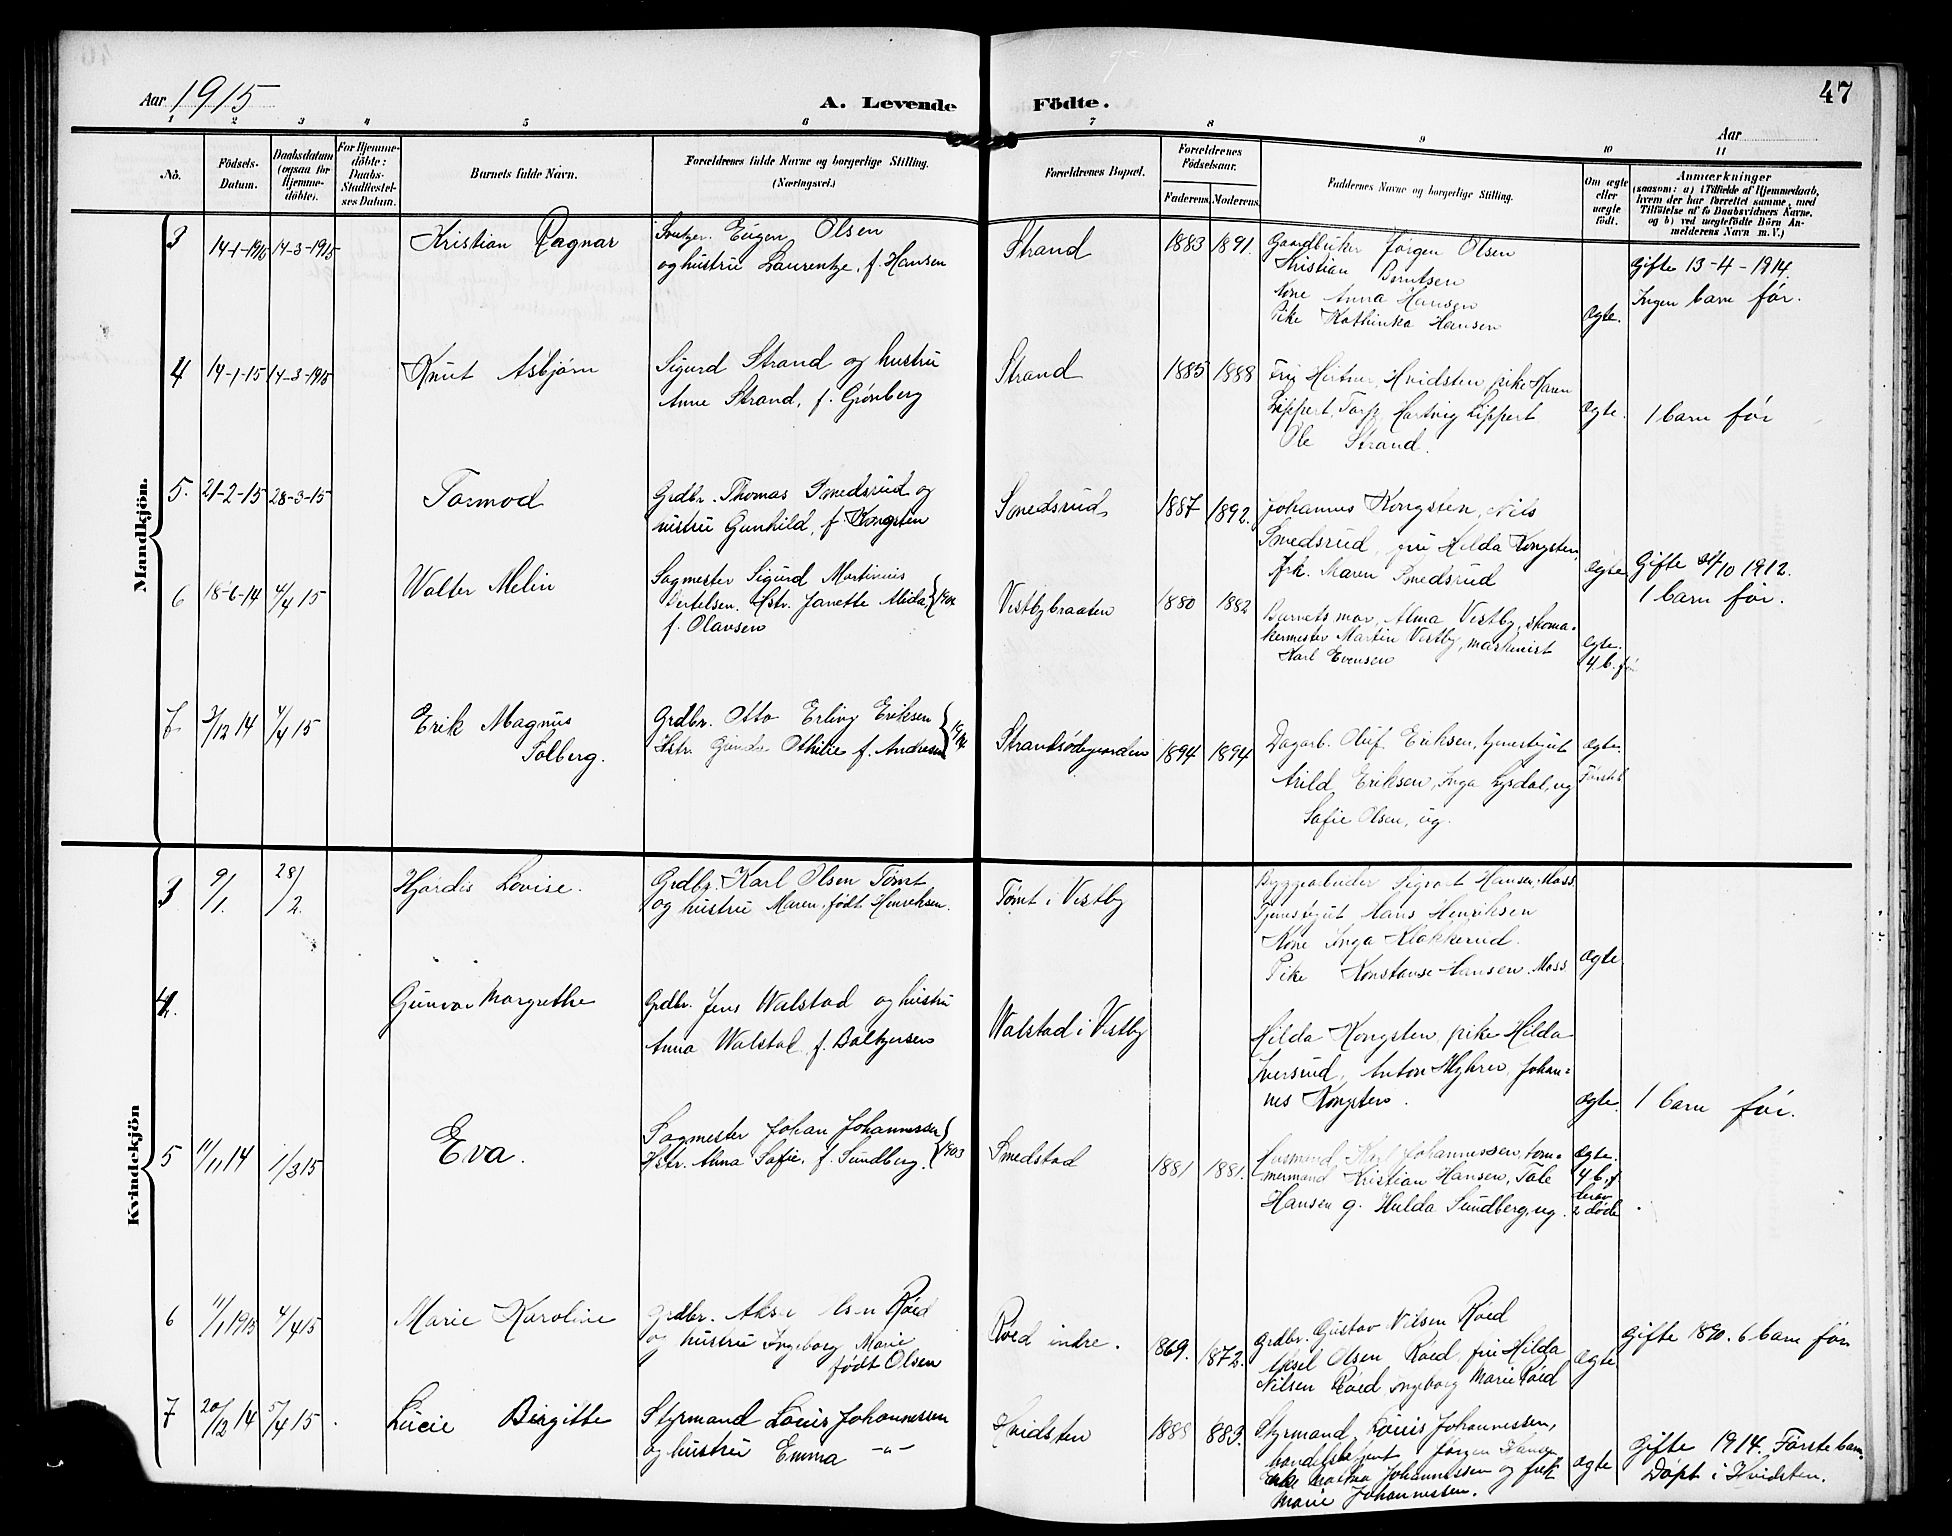 Aar 1915
A. Levende Födte.
47
Aar
1 2 3 4 5 6 7 8 9 10 11
No.
Födsels-Datum.
Daabsdatum (ogsaa for Hjemme-döbte).
For Hjemme-döbte: Daabs-Stadfæstel-ses Datum.
Barnets fulde Navn.
Forældrenes fulde Navne og borgerlige Stilling.
(Næringsvei.)
Forældrenes Bopæl.
Forældrenes Födselsaar.
Faderens. Moderens.
Faddernes Navne og borgerlige Stilling.
Om ægte eller uægte født.
Anmærkninger
(saasom: a) i Tilfælde af Hjemmedaab, hvem der har forrettet samme, med Tilföielse af to Daabsvidners Navne, og b) ved uægtefødte Börn An-melderens Navn m. V.)
Mandkjön.
3 14-1-1915 14-3-1915 Kristian Ragnar
Eugen Olsen
og hustru Laurentze, f. Hansen
Strand 1883 1891.
Gaardbruker Jørgen Olsen
Kristian Berntsen
Kone Anna Hansen
Pike Kathinka Hansen
ægte.
Gifte 13-4-1914.
Ingen barn før.
4 14-1-15 14-3-1915 Knut Asbjørn
Sigurd Strand og hustru
Anne Strand, f. Grønberg
Strand 1885 1888
Hvidsten, pike Karen
Lippert, Torp, Hartvig Lippert
Ole Strand.
ægte.
1 barn før
5. 21-2-15 28-3-15 Tormod
Grdbr. Thomas Smedsrud og
hustru Gunhild, f. Kongsten
Smedsrud 1887 1892.
Johannes Kongsten, Nils
Smedsrud, fru Hilda Kongsten,
frk. Maren Smedsrud
ægte
Gifte /10 1912.
1 barn før.
6 18-6-14 4/4 15 Walter Melin
Sagmester Sigurd Martinius
Bertelsen. Hstr. Janette Alida
f. Olavsen
Vestbybraaten 1880 1882
Barnets mor, Alma Vestby, skoma-
kermester Martin Vestby, maskinist
Karl Evensen
ægte.
4 b. før
7 3/12 14 4/4 15 Erik Magnus
Solberg.
Grdbr. Otto Erling Eriksen
Hstr. Othilie f. Andresen
1894 1894
Dagarb. Oluf Eriksen, tjenestegut
Arild Eriksen, Inga Lysdal, ug
Sofie Olsen, ug.
ægte.
Kvindekjön
3 9/1. 28/2. Hjørdis Lovise.
Grdbr. Karl Olsen Tømt
og hustru Maren, født Henriksen.
Tømt i Vestby
Sigvart Hansen, Moss
Tjenestegut Hans Henriksen
Kone Inga Klokkerud.
Pike Konstanse Hansen. Moss
ægte
4. Gunvor Margrethe
Grdbr. Jens Walstad og hustru
Anna Walstad f. Baltzersen
Walstad i Vestby
Hilda Kongsten, pike Hilda
Iversrud, Anton Myhrer, Johan=
nes Kongsten.
ægte.
1 barn før.
5 11/11 14 1/3 15 Eva.
Sagmester Johan Johannessen
Hstr. Anna Sofie, f. Sundberg. 1903
Smedstad 1881 1881.
Husmand Karl Johannessen, tøm-
mermand Kristian Hansen, Tale
Hansen g. Hulda Sundberg, ug.
ægte.
4 b. f.
derav
2 døde
6 11/1 1915 4/4 15 Marie Karoline
Grdbr. Aksel Olsen Røed
og hustru Ingeborg Marie
født Olsen
Røed indre. 1869. 1872.
Grdbr. Gustav Nilsen Røed
Aksel Olsen Røed, fru Hilda
Nilsen Røed, Ingeborg Marie Røed
ægte
Gifte 1890. 6 barn før
7 20/12 14 5/4 15 Lucie Birgitte
Styrmand Louis Johannessen
og hustru Emma -"-
Hvidsten 1888 1883.
Styrmand Louis Johannessen,
Jørgen Hansen
Johannessen og frk
Marie Johannessen.
ægte
Gifte 1914. Første barn
Døpt i Hvidsten.